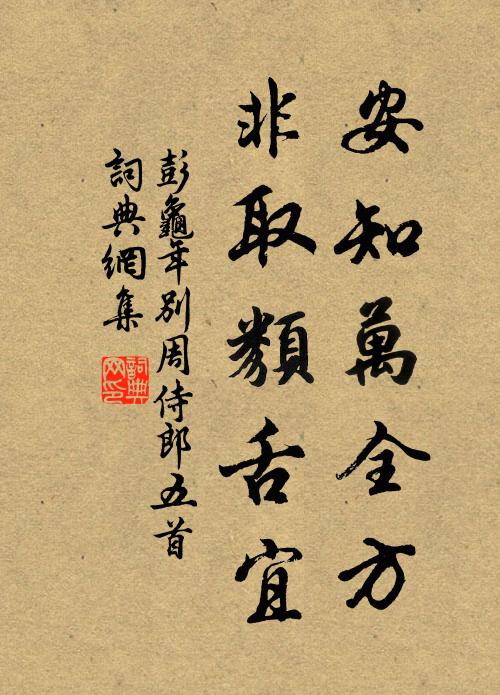 安知萬全方
非取類舌宜
彭龜年別周侍郎五首
詞典網集
詞典网印